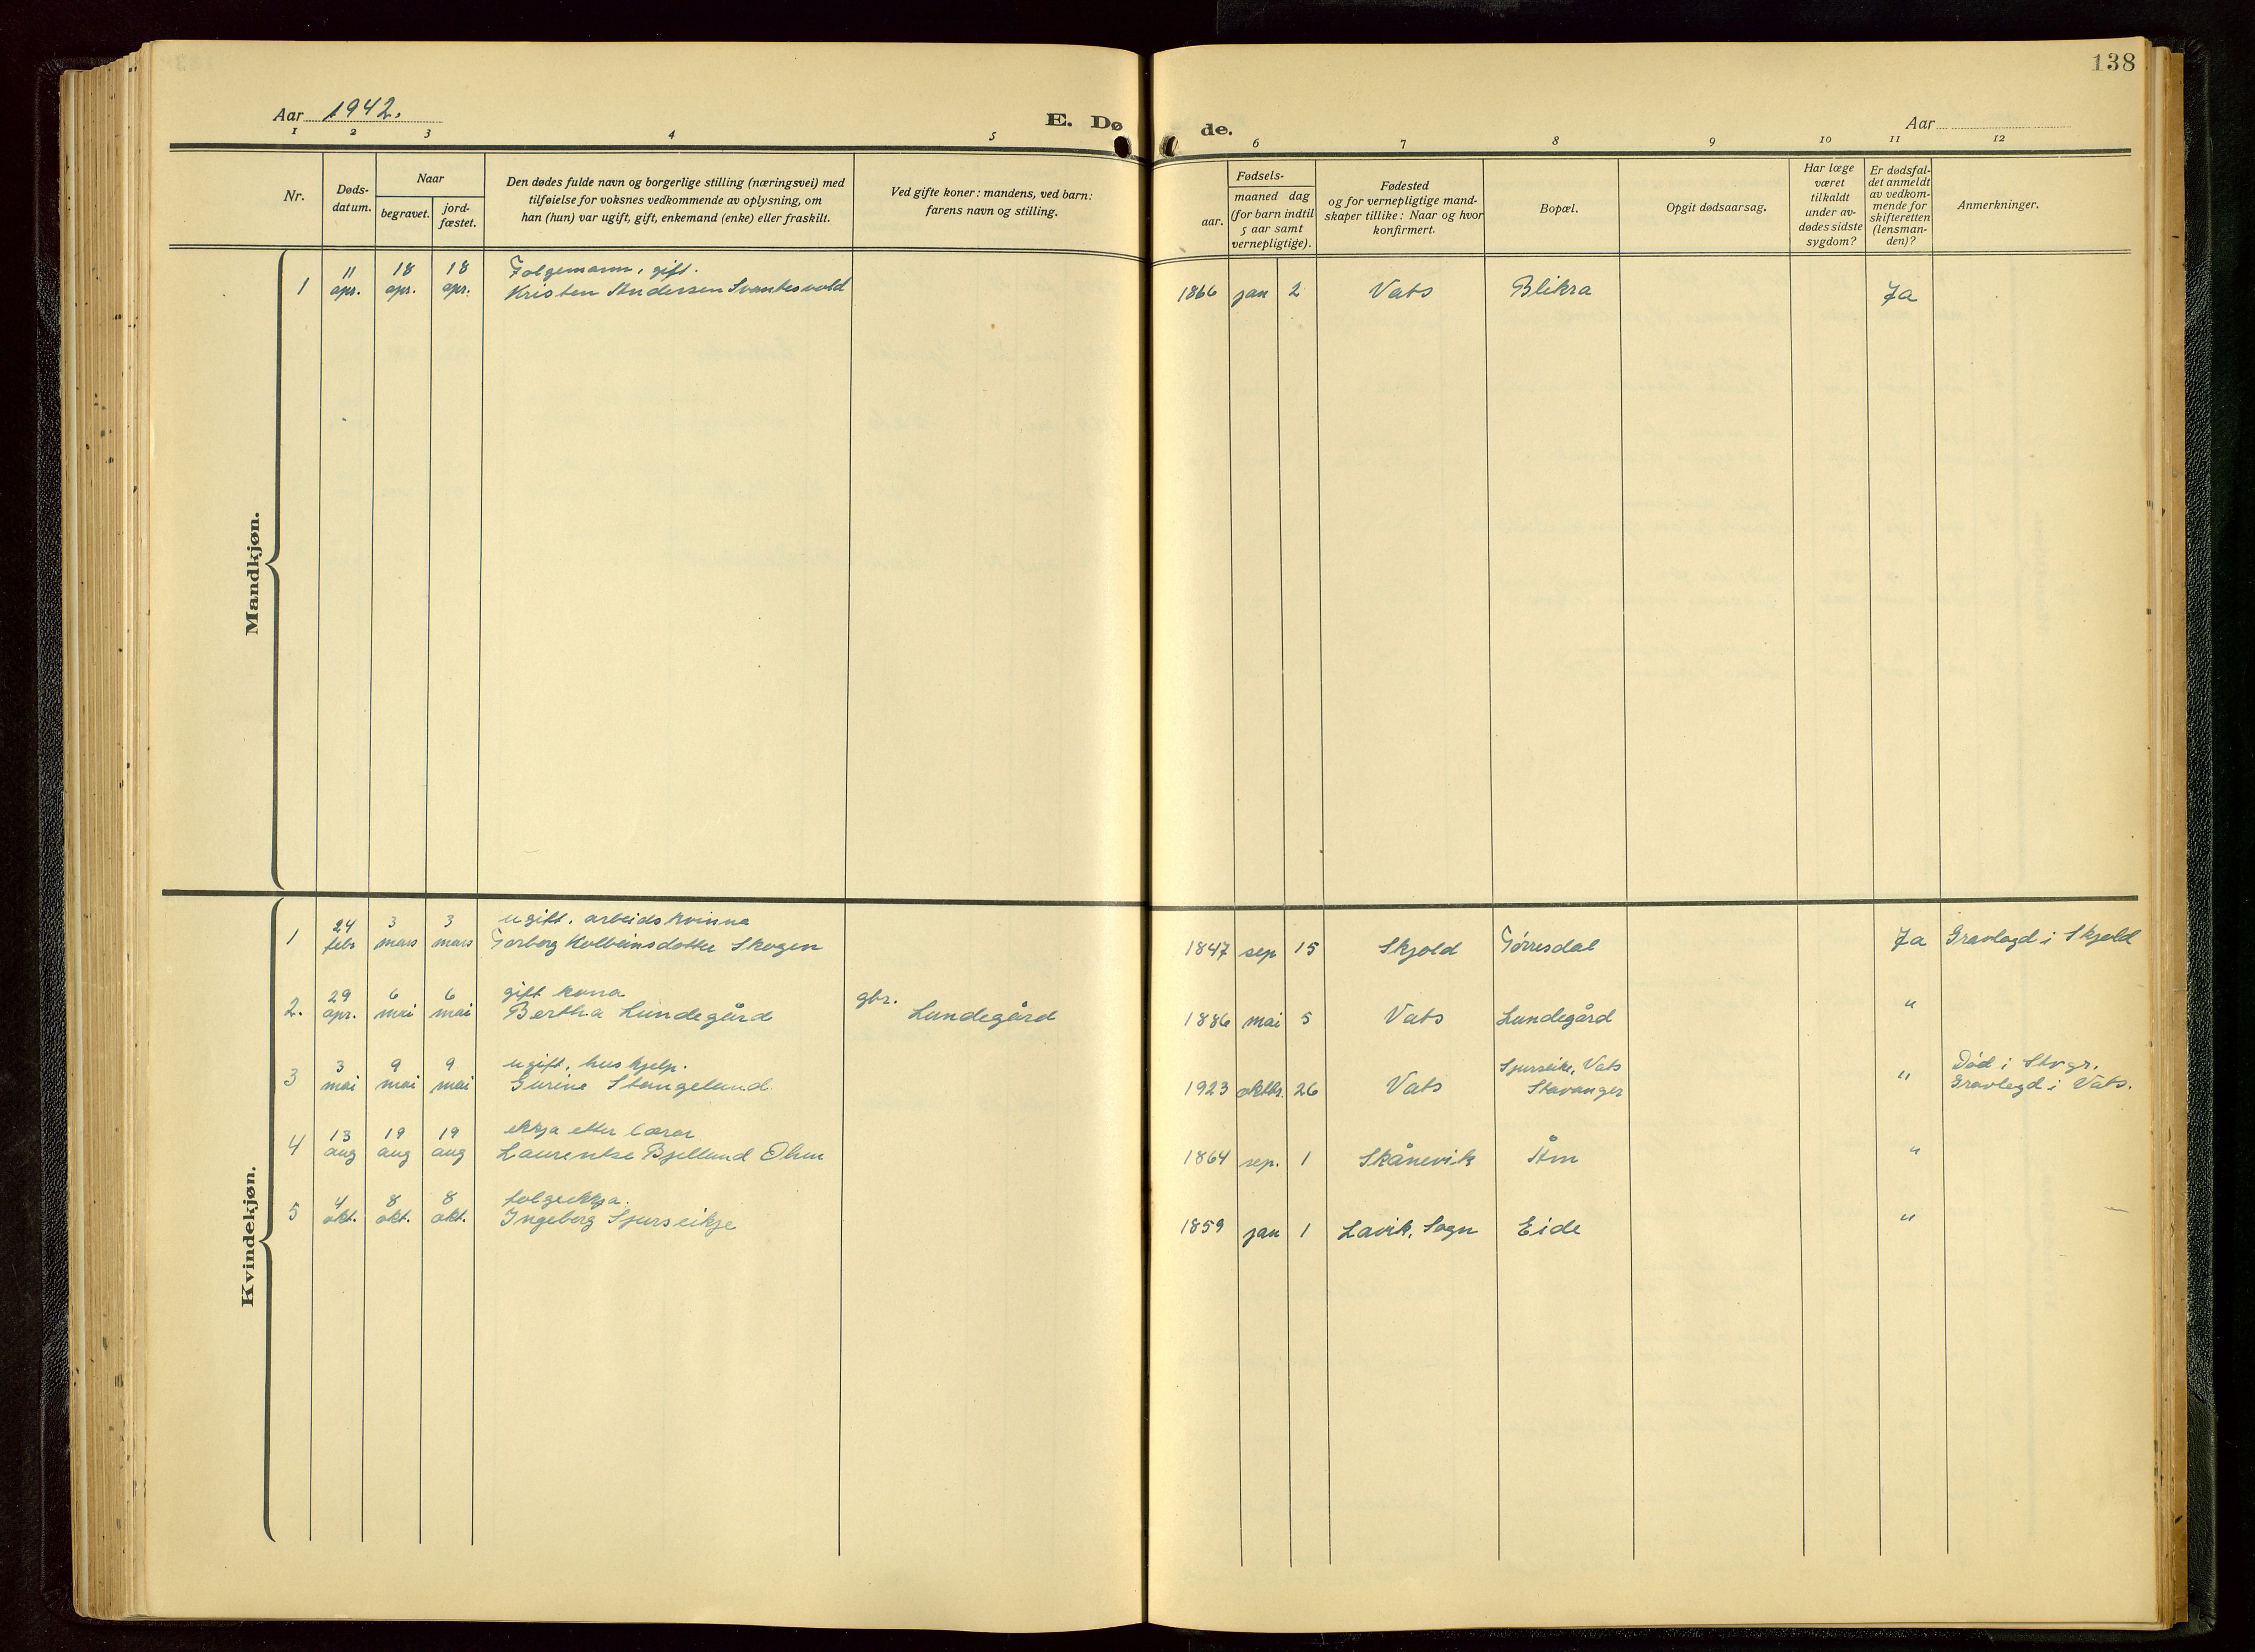 138
Aar 1942.
E. Dø de.
Aar
1 2 3 4 5 6 7 8 9 10 11 12
Nr.
Døds-
datum.
Naar
begravet.
jord-
fæstet.
Den dødes fulde navn og borgerlige stilling (næringsvei) med
tilføielse for voksnes vedkommende av oplysning, om
han (hun) var ugift, gift, enkemand (enke) eller fraskilt.
Ved gifte koner: mandens, ved barn:
farens navn og stilling.
Fødsels-
aar.
maaned dag
(for barn indtil
5 aar samt
vernepligtige).
Fødested
og for vernepligtige mand-
skaper tillike: Naar og hvor
konfirmert.
Bopæl.
Opgit dødsaarsag.
Har læge
været
tilkaldt
under av-
dødes sidste
sygdom?
Er dødsfal-
det anmeldt
av vedkom-
mende for
skifteretten
(lensman-
den)?
Anmerkninger.
Mandkjøn.
11 18 18 Folgemann, gift.
1 apr. apr. apr. Kristen Andersen Svantesvold 1866 jan 2 Vats Blikra Ja
Kvindekjøn.
24 3 3 ugift, arbeidskvinna
1 febr mars mars Torborg Kolbeinsdotter Skogen 1847 sep 15 Skjold Tørresdal Ja Gravlagd i Skjold
29 6 6 gift kona gbr.
2. apr. mai mai Bertha Lundegård Lundegård 1886 mai 5 Vats Lundegård "
3 9 9 ugift, huskjelp. Sjurseike, Vats Død i Stvgr.
3 mai mai mai Gurine Stangeland 1923 oktbr. 26 Vats Stavanger " Gravlegd i Vats.
13 19 19 ekkja etter lærar
4 aug aug aug Laurentse Bjelland Ohm 1864 sep. 1 Skånevik Åm "
4 8 8 folgeekkja.
5 okt. okt. okt. Ingeborg Sjurseikje 1859 jan 1 Lavik, Sogn Eide "